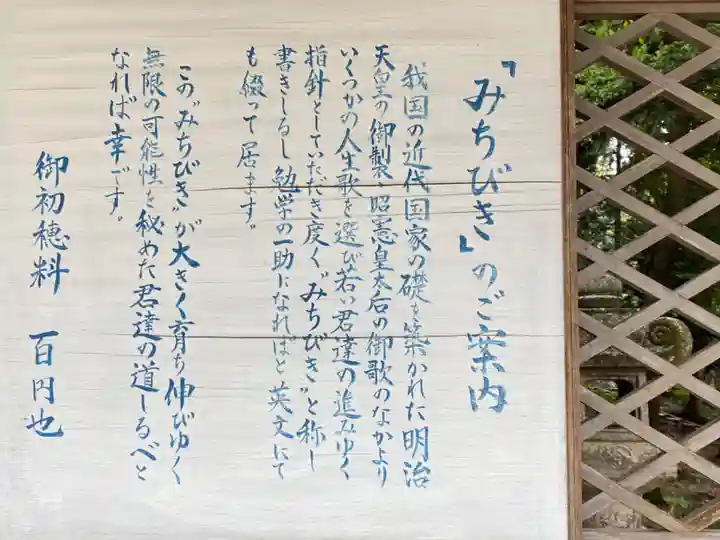 「みちびき」のご案内
我国の近代国家の礎を築かれた明治
天皇の御製、昭憲皇太后の御歌のなかより
いくつかの人生歌を選び若い君達の進みゆく
指針としていただき度く〝みちびき〟と称し
書きしるし勉学の一助になればと英文にて
も綴って居ます。
この〝みちびき〟が大きく育ち伸びゆく
無限の可能性を秘めた君達の道しるべと
なれば幸です。
御初穂料 百円也